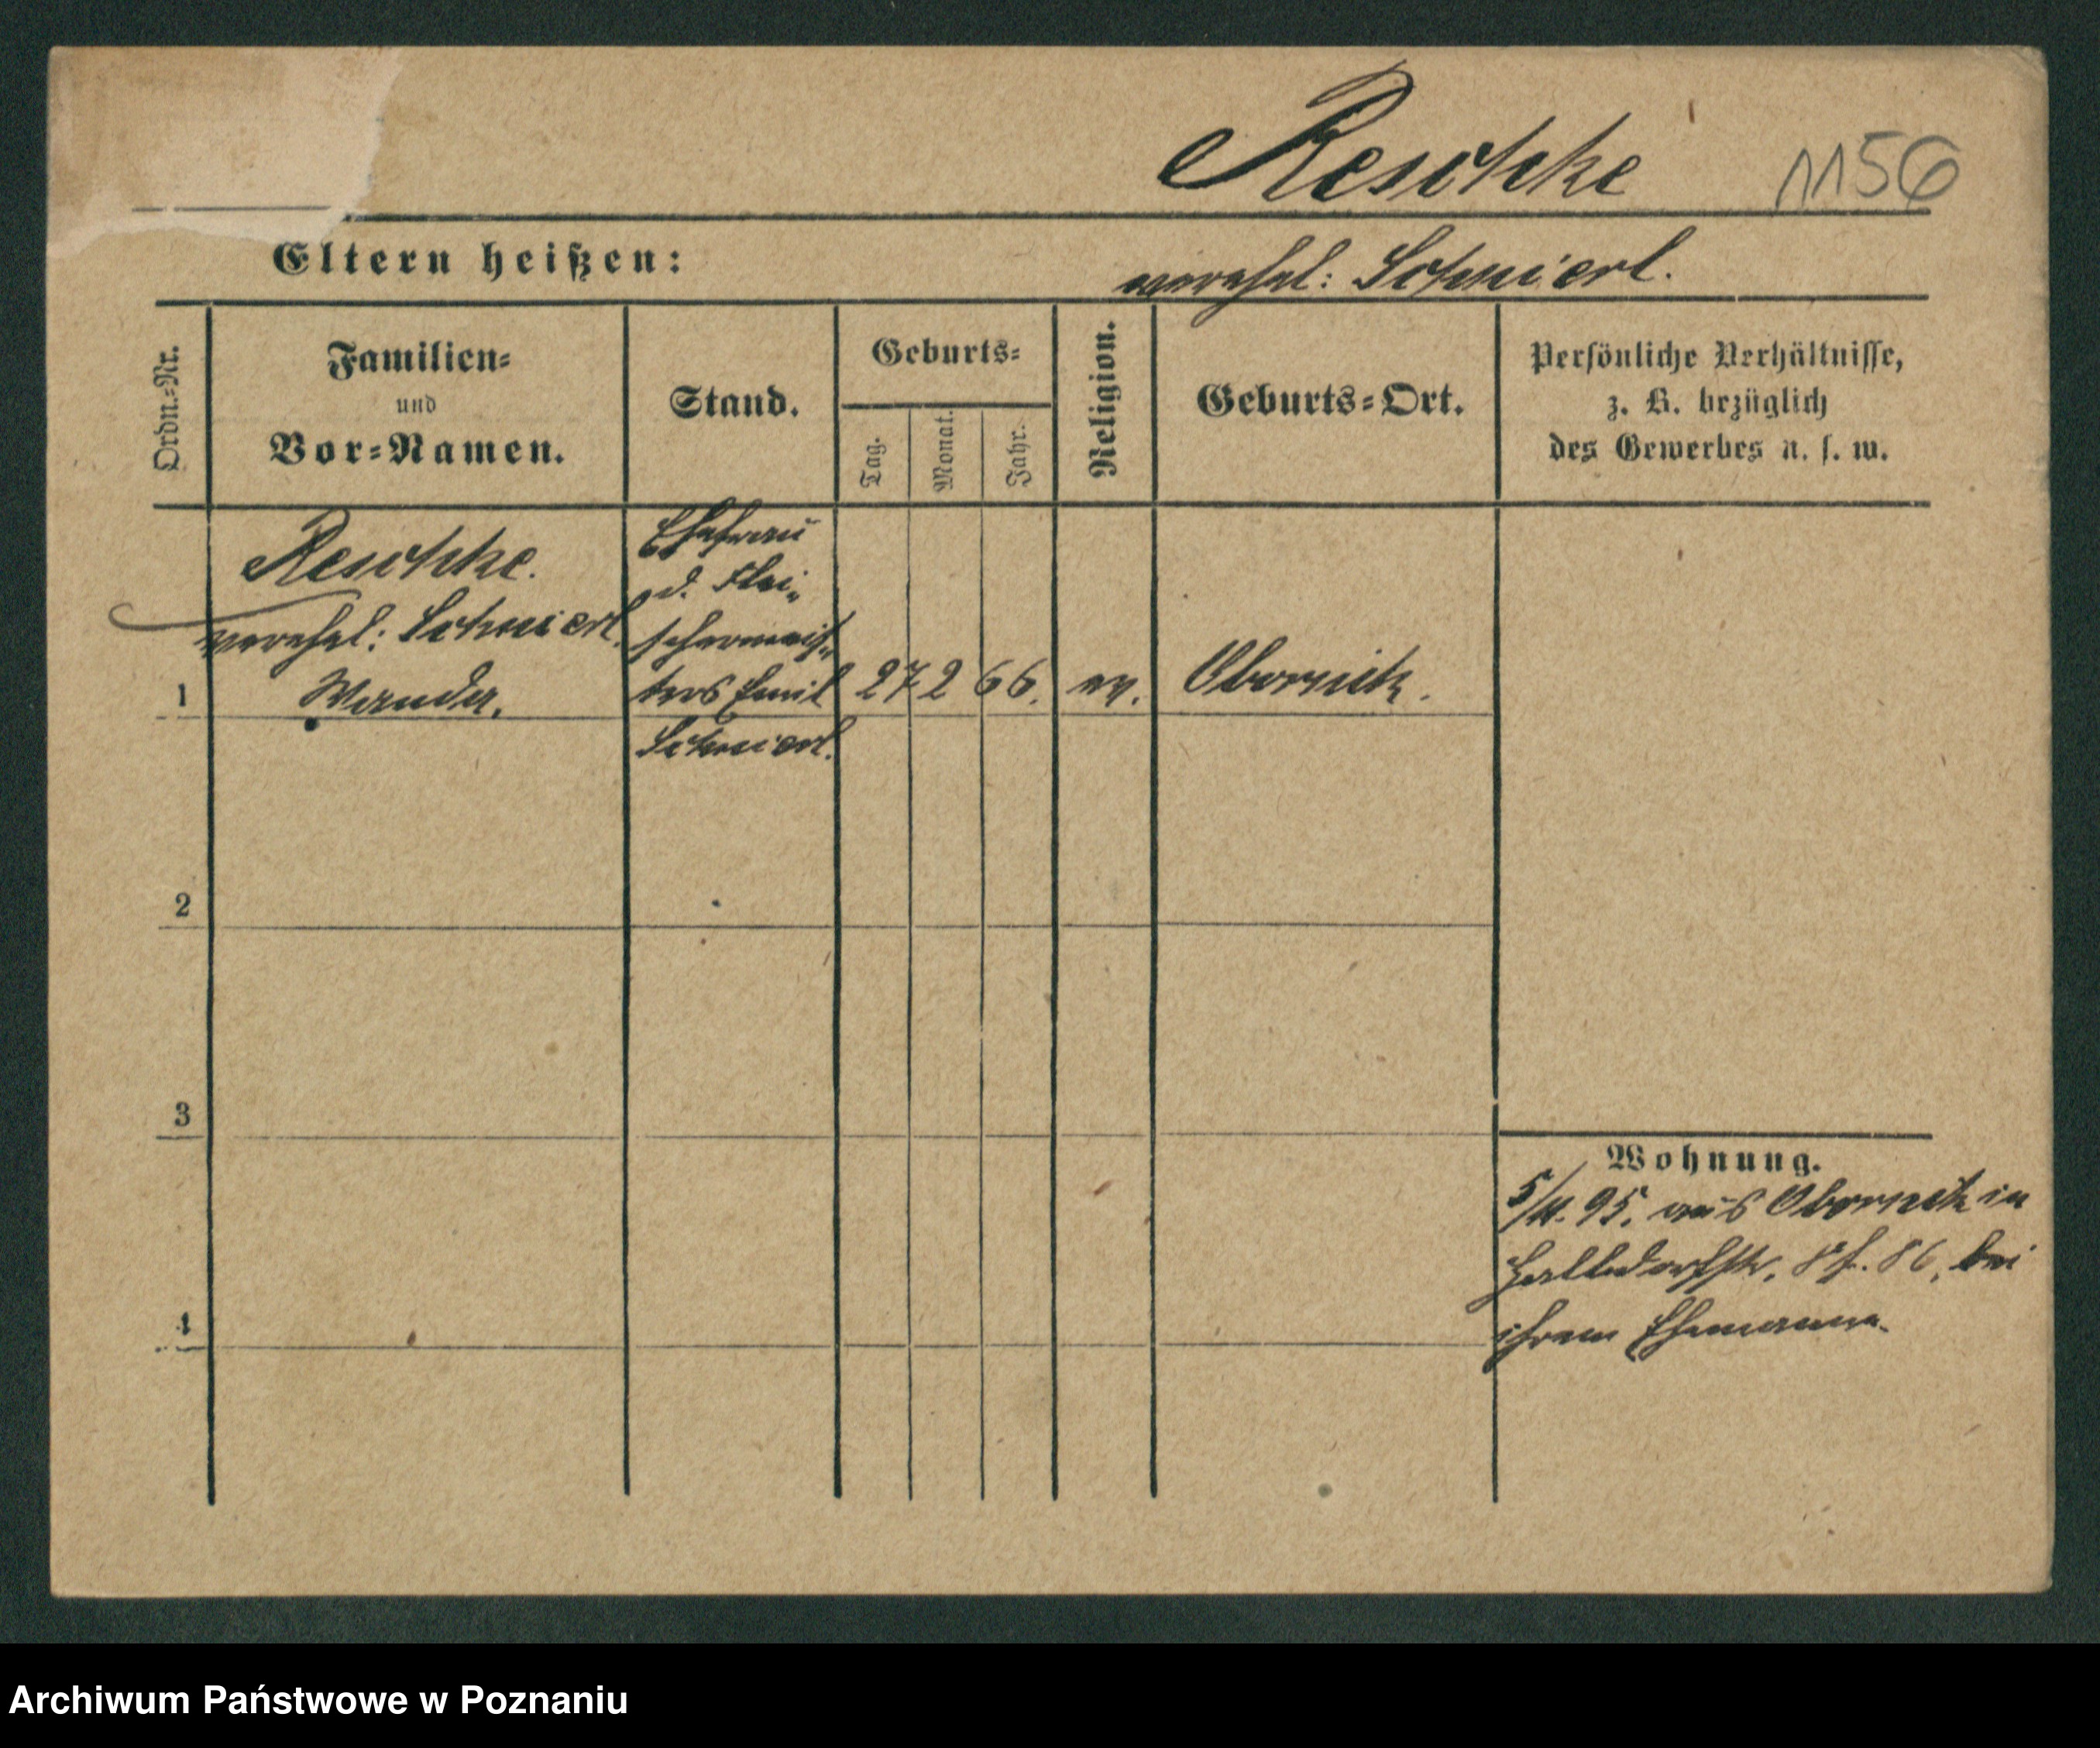 Reschke 1156
Eltern heißen:
verehel: Schmierl.
Ordn.=Nr.
Familien=
und
Vor=Namen.
Stand.
Geburts=
Tag.
Monat.
Jahr.
Religion.
Geburts=Ort.
Persönliche Verhältnisse,
z. B. bezüglich
des Gewerbes u. s. w.
Reschke.
verehel: Schmierl.
Wanda.
Ehefrau
d. Flei„
schermeis„
ters Emil
Schmierl.
1
27 2 66. ev. Obornik.
2
3
4
Wohnung.
5/11. 95. aus Obornik in
86, bei
ihrem Ehemann.
Archiwum Państwowe w Poznaniu